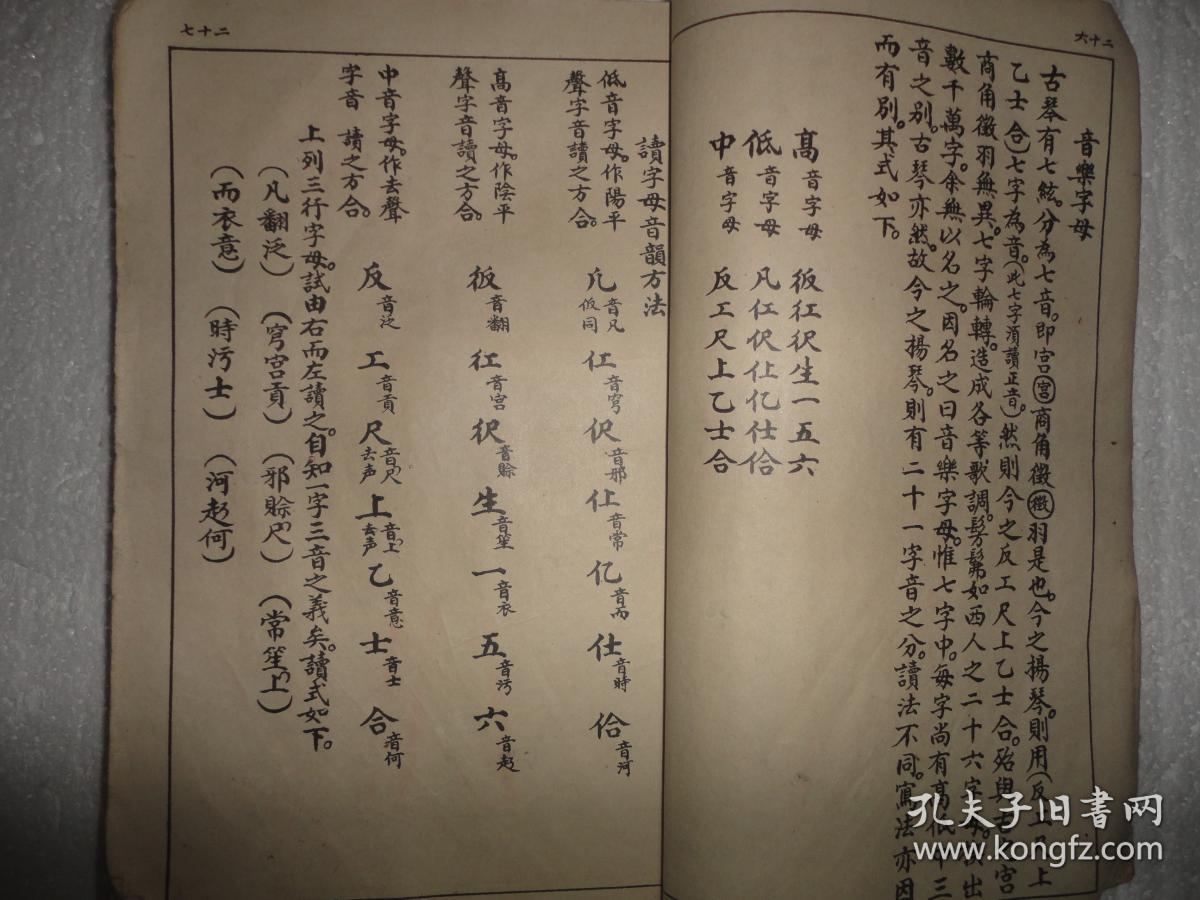 二十六
音樂字母
古琴有七絃。分為七音。即宮㊪商角徵㊪羽是也。今之揚琴。則用(反工尺上
乙士合)七字為音。(此七字須讀正音。)然則今之反工尺上乙士合。殆與古之宮
商角徵羽無異。七字輪轉。造成各等歌調。髣髴如西人之二十六字母。拼出
數千萬字。余無以名之。因名之曰音樂字母。惟七字中。每字尚有高低中三
音之別。古琴亦然。故今之揚琴。則有二十一字音之分。讀法不同。寫法亦因
而有別。其式如下。
高音字母 仮仜伬生一五六
低音字母 凡仜伬仩亿仕佮
中音字母 反工尺上乙士合
二十七
讀字母音韻方法
低音字母。作陽平
聲字音讀之方合。
凡音凡仮同 仜音穹 伬音邪 仩音常 亿音而 仕音時 佮音河
高音字母。作陰平
聲字音讀之方合。
仮音翻 仜音宮 伬音賒 生音笙 一音衣 五音污 六音起
中音字母。作去聲
字音 讀之方合。
反音泛 工音貢 尺音尺去声 上音上去声 乙音意 士音士 合音何
上列三行字母。試由右而左讀之。自知一字三音之義矣。讀式如下。
(凡翻泛) (穹宮貢) (邪賒尺) (常笙上)
(而衣意) (時污士) (河起何)
孔夫子旧书网
www.kongfz.com